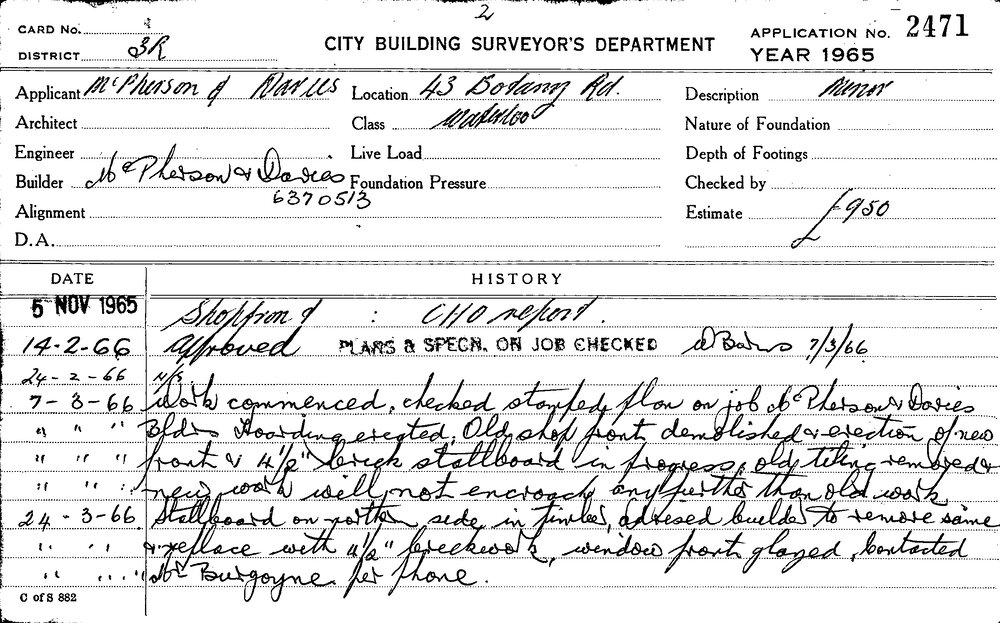 2
CARD No.
DISTRICT 3R
CITY BUILDING SURVEYOR'S DEPARTMENT
APPLICATION No. 2471
YEAR 1965
Applicant McPherson & Davies Location 43 Botany Rd. Description Minor
Architect Class Waterloo Nature of Foundation
Engineer Live Load Depth of Footings
Builder McPherson & Davies Foundation Pressure Checked by
6370513
Alignment Estimate £950
D.A. £
DATE HISTORY
5 NOV 1965 Shopfront : CHO report.
14-2-66 Approved PLANS & SPECN. ON JOB CHECKED 7/3/66
24-2-66 N/S
7-3-66 Work commenced, checked stamped plan on job McPherson & Davies
" " " Bldrs Hoarding erected, Old shop front demolished & erection of new
" " " front & 4½" brick stallboard in progress, old tiling removed &
" " " new work will not encroach any further than old work
24-3-66 Stallboard on northern side in timber, advised builder to remove same
" " " & replace with 4½" brickwork, window front glazed, Contacted
" " " Mr Burgoyne per phone.
C of S 882